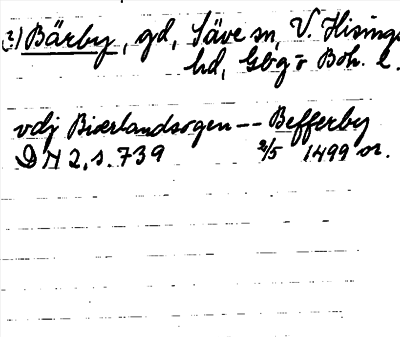 2) Bärby, gd, Säve sn, V. Hisings
hd, Gbg o Boh. l.
vdj Biærlandsogen -- Befferby
DN 2, s. 739 2/5 1499 or.